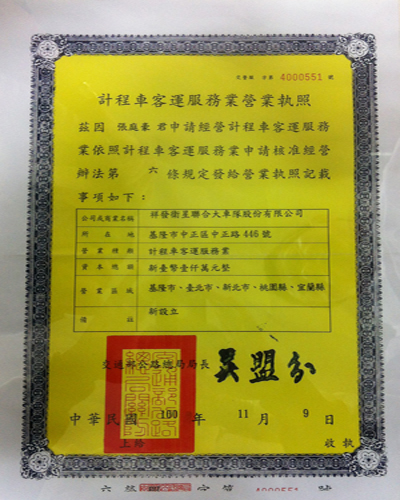 字第 4000551 號
計程車客運服務業營業執照
茲因 張庭豪 君申請經營計程車客運服務
業依照計程車客運服務業申請核准經營
辦法第 六 條規定發給營業執照記載
事項如下：
公司或商業名稱 祥發衛星聯合大車隊股份有限公司
所在地 基隆市中正區中正路446號
營業種類 計程車客運服務業
資本總額 新臺幣壹仟萬元整
營業區域 基隆市、臺北市、新北市、桃園縣、宜蘭縣
備註 新設立
交通部公路總局局長 吳盟分
中華民國 100 年 11 月 9 日
上給 收執
字第 4000551 號